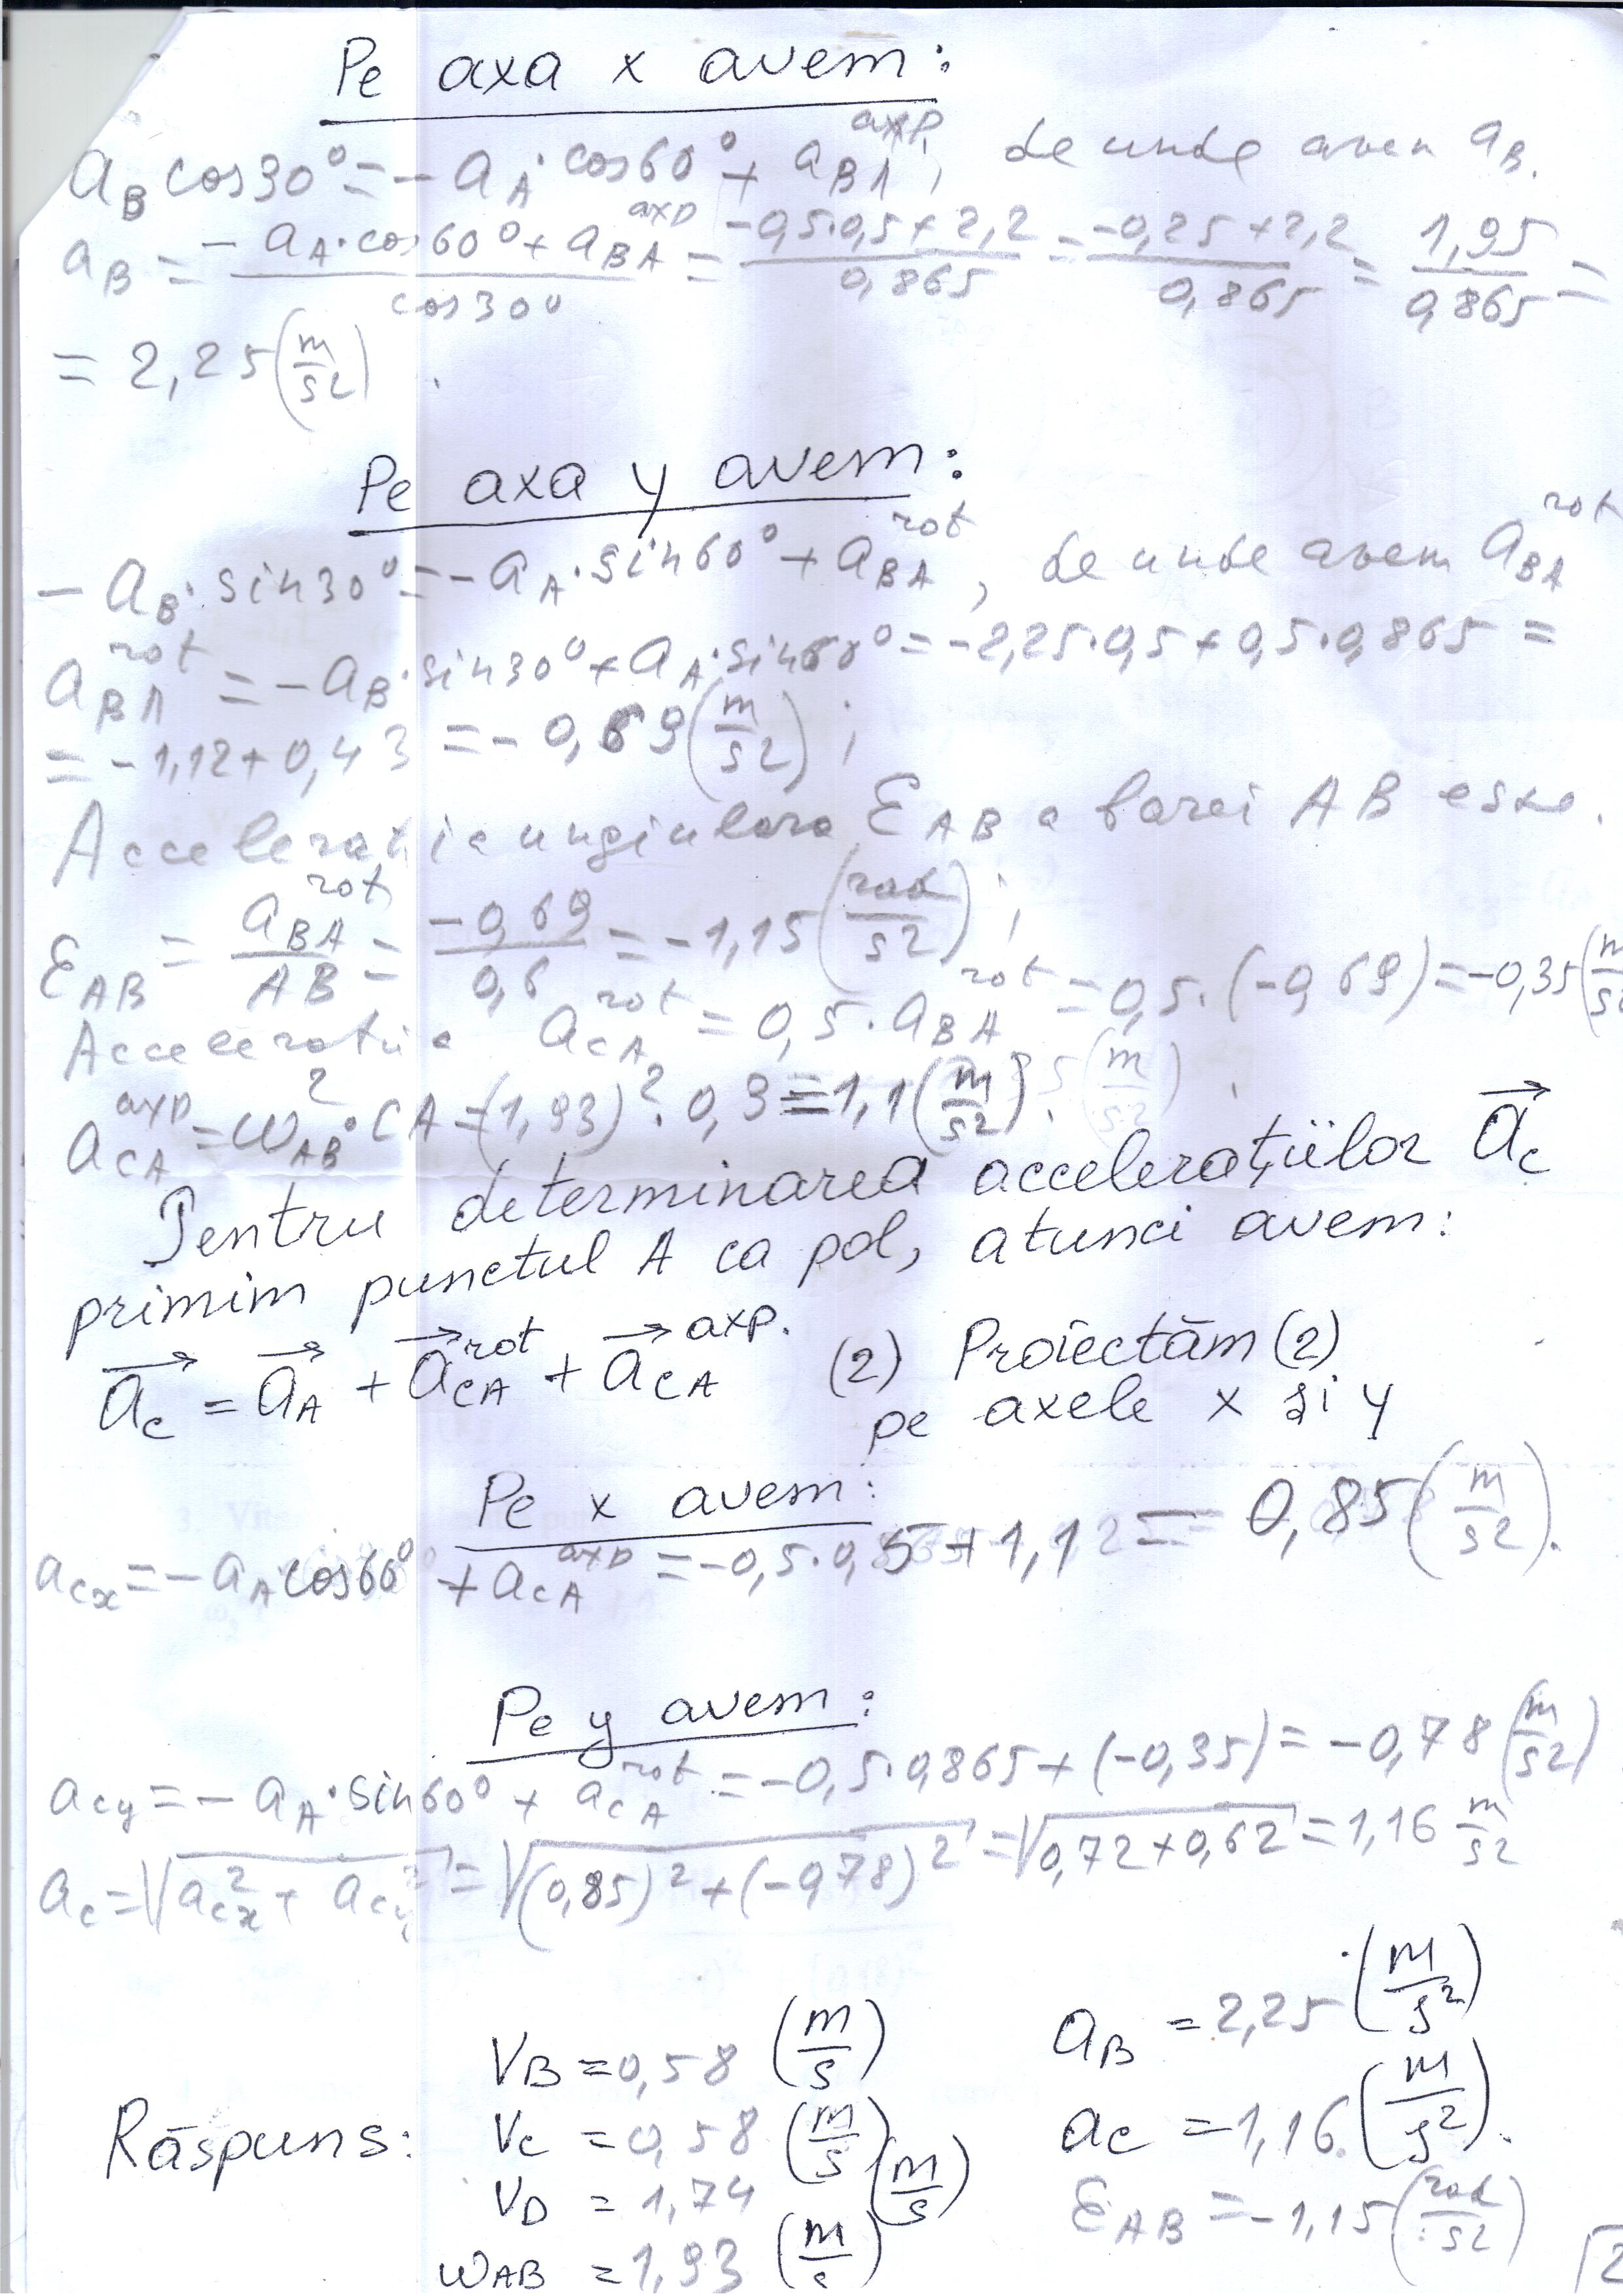 Pe axa x avem:
a_B cos30° = - a_A · cos60° + a_BA^axp, de unde aven a_B.
a_B = (- a_A · cos60° + a_BA^axp)/(cos30°) = (-0,5·0,5+2,2)/(0,865) = (-0,25+2,2)/(0,865) = (1,95)/(0,865) =
= 2,25 (m/s2)
Pe axa y avem:
- a_B · sin30° = - a_A · sin60° + a_BA^rot, de unde avem a_BA^rot
a_BA^rot = - a_B · sin30° + a_A · sin60° = -2,25·0,5+0,5·0,865 =
= -1,12+0,43 = -0,69 (m/s2);
Acceleratie unghiulara Ɛ_AB a barei AB este.
Ɛ_AB = (a_BA^rot)/(AB) = (-0,69)/(0,6) = -1,15 (rad/s2);
Acceleratie a_CA^rot = 0,5 · a_BA^rot = 0,5·(-0,69) = -0,35 (m/s2
a_CA^axp = ω_AB^2 · CA = (1,93)^2 · 0,3 = 1,1 (m/s2).
Pentru determinarea accelerațiilor a⃗_c
primim punctul A ca pol, atunci avem:
a⃗_c = a⃗_A + a⃗_CA^rot + a⃗_CA^axp. (2) Proiectăm (2)
pe axele x și y
Pe x avem:
a_cx = - a_A cos60° + a_CA^axp = -0,5·0,5+1,12 = 0,85 (m/s2).
Pe y avem:
a_cy = - a_A · sin60° + a_CA^rot = -0,5·0,865+(-0,35) = -0,78 (m/s2)
a_c = √(a_cx^2 + a_cy^2) = √((0,85)^2+(-0,78)^2) = √(0,72+0,62) = 1,16 m/s2
Răspuns:
V_B = 0,58 (m/s)
V_C = 0,58 (m/s)
V_D = 1,74 (m/s)
ω_AB = 1,93 (m/s)
a_B = 2,25 (m/s²)
a_C = 1,16 (m/s²).
Ɛ_AB = -1,15 (rad/s2)